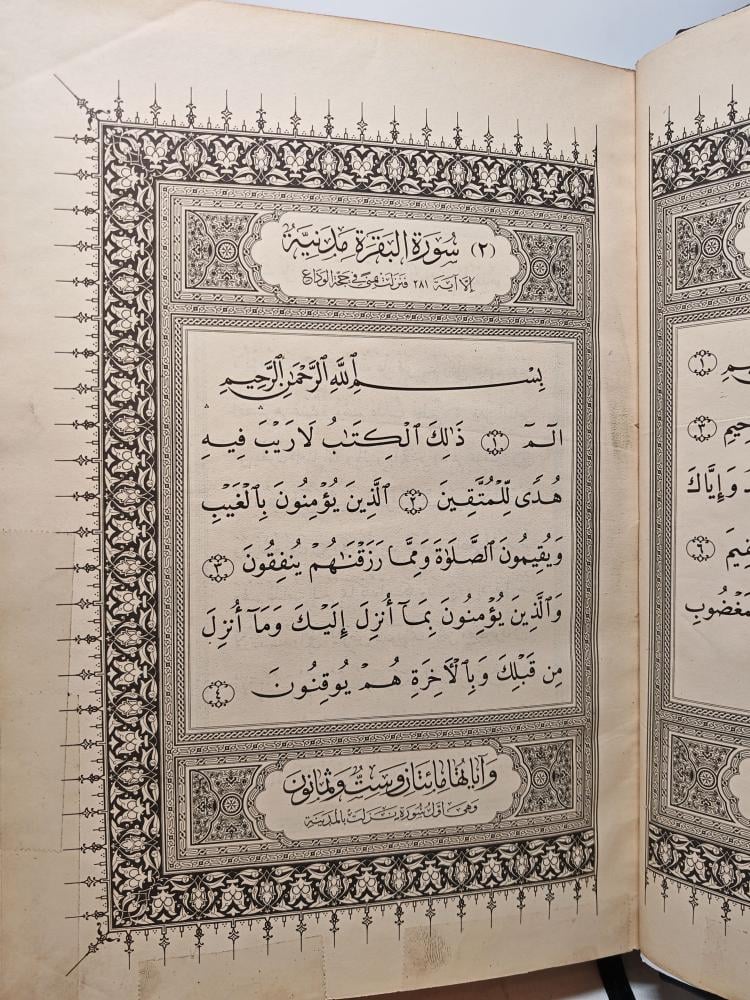 (٢) سُورَةُ الْبَقَرَةِ مَدَنِيَّةٌ
إلا آية ٢٨١ فنزلت بمنى في حجة الوداع
بِسْمِ ٱللَّهِ ٱلرَّحْمَٰنِ ٱلرَّحِيمِ
الٓمٓ ١ ذَٰلِكَ ٱلْكِتَٰبُ لَا رَيْبَ فِيهِ
هُدًى لِّلْمُتَّقِينَ ٢ ٱلَّذِينَ يُؤْمِنُونَ بِٱلْغَيْبِ
وَيُقِيمُونَ ٱلصَّلَوٰةَ وَمِمَّا رَزَقْنَٰهُمْ يُنفِقُونَ ٣
وَٱلَّذِينَ يُؤْمِنُونَ بِمَآ أُنزِلَ إِلَيْكَ وَمَآ أُنزِلَ
مِن قَبْلِكَ وَبِٱلْأَخِرَةِ هُمْ يُوقِنُونَ ٤
وآياتها مائتان وست وثمانون
وهي أول سورة نزلت بالمدينة
١
٣
وَإِيَّاكَ
٦